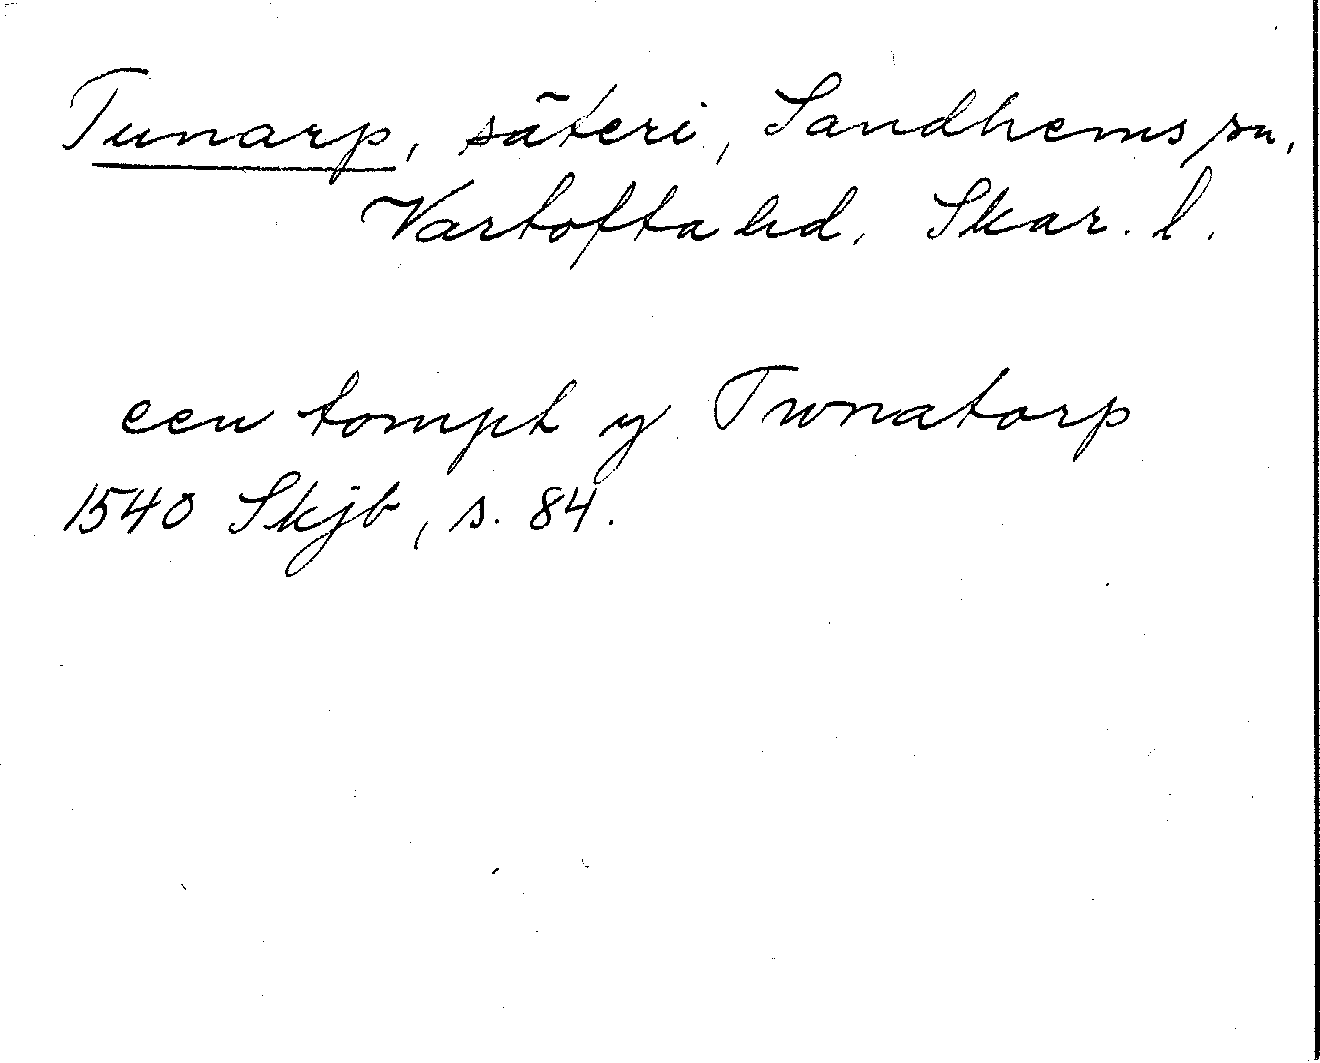 Tunarp, säteri, Sandhems sn,
Vartofta hd, Skar. l.
een tompt y Twnatorp
1540 Skjb, s. 84.